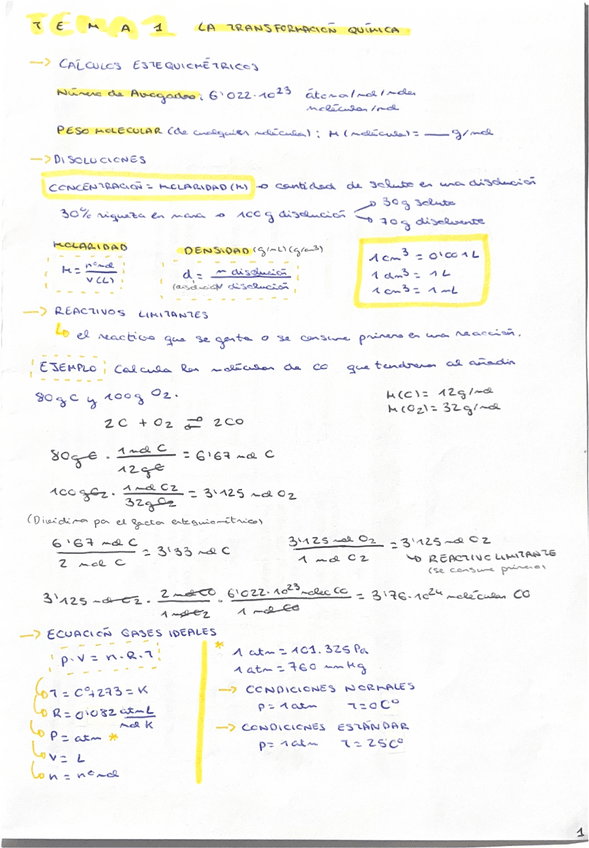 TEMA 1 LA TRANSFORMACIÓN QUÍMICA
→ CÁLCULOS ESTEQUIOMÉTRICOS
Número de Avogadro: 6'022·10²³ átomos/mol/moles
moléculas/mol
PESO MOLECULAR (de cualquier molécula): M(molécula)= ___ g/mol
→ DISOLUCIONES
CONCENTRACIÓN = MOLARIDAD (M) → cantidad de soluto en una disolución
30% riqueza en masa → 100g disolución → 30g soluto
→ 70g disolvente
MOLARIDAD
M = nº mol / V(L)
DENSIDAD (g/mL) (g/cm³)
d = m disolución / disolución
1cm³ = 0'001L
1dm³ = 1L
1cm³ = 1mL
→ REACTIVOS LIMITANTES
↳ el reactivo que se gasta o se consume primero en una reacción.
EJEMPLO Calcula las moléculas de CO que tendremos al añadir
80g C y 100g O2.
M(C) = 12g/mol
M(O2) = 32g/mol
2C + O2 ⇄ 2CO
80gC · 1 mol C / 12gC = 6'67 mol C
100gO2 · 1 mol O2 / 32gO2 = 3'125 mol O2
(Dividimos por el factor estequiométrico)
6'67 mol C / 2 mol C = 3'33 mol C
3'125 mol O2 / 1 mol O2 = 3'125 mol O2
↳ REACTIVO LIMITANTE
(se consume primero)
3'125 mol O2 · 2 mol CO / 1 mol O2 · 6'022·10²³ moléc CO / 1 mol CO = 3'76·10²⁴ moléculas CO
→ ECUACIÓN GASES IDEALES
P·V = n·R·T
T = Cº+273 = K
R = 0'082 atm L / mol K
P = atm *
V = L
n = nº mol
* 1 atm = 101.325 Pa
1 atm = 760 mmHg
→ CONDICIONES NORMALES
P = 1 atm T = 0Cº
→ CONDICIONES ESTÁNDAR
P = 1 atm T = 25Cº
1